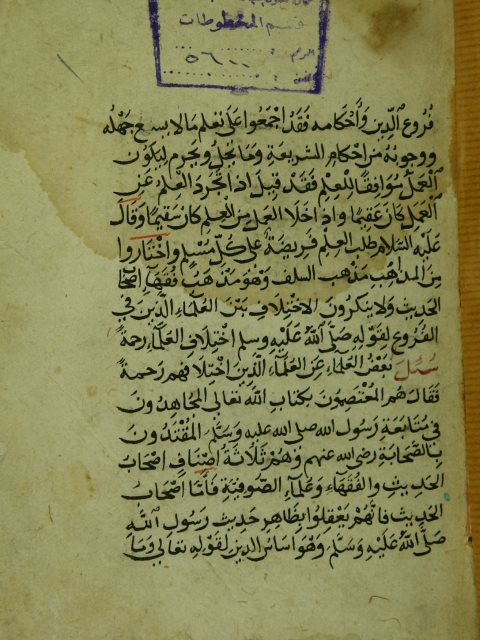 قسم المخطوطات
الرقم:
٥٦٠٠
فُرُوع الدِّين وَأَحْكامه فَقَدْ اجْمَعُوا عَلَى تعلم مَالا يسع جَهْلُه
ووجوبهُ من احْكامِ الشريعَةِ وَمَا يَحِلُّ ويَحرم ليكون
الْعَمَلُ مُوَافقًا للعِلْمِ فَقَدْ قيلَ اذا تجَّردَ العِلْمُ عَنِ
الْعَمَلِ كَانَ عَقِيمًا واذ اخَلَا العَمَلُ مِنَ العِلْمِ كانَ سَقيمًا وَقَالَ
عَلَيْهِ السَّلام طلب العِلْمِ فَرِيضَةٌ عَلَى كُلِّ مُسْلِمٍ واخْتَارُوا
مِنَ المذاهِبِ مَذْهَبَ السلف وَهُوَ مَذْهَبُ فُقَهَاءِ اصْحَابِ
الحَدِيث وَلا ينكرُونَ الاخْتِلَافَ بَيْنَ العُلمَاءِ الَّذِينَ في
الفُرُوعِ لقَوْلِهِ صَلَّى اللهُ عَلَيْهِ وسلم اخْتِلَافُ العُلَمَاءِ رحمَةٌ
سُئِلَ بَعْضُ العُلَمَاءِ عَنِ العُلَمَاءِ الَّذِينَ اخْتِلَافهم رَحمَةٌ
فَقَالَ هُم المُعْتَصِمُونَ بكتاب اللهِ تعَالى المجَاهِدُونَ
فِي مُتَابَعَةِ رَسُول اللهِ صلى الله عليهِ وَسَلَّم المُقْتَدُونَ
بِالصَّحَابَةِ رضى الله عنهم وَهُمْ ثَلَاثَةُ اصْنَافٍ اصْحَابُ
الحَدِيثِ والفُقَهَاءِ وَعُلمَاءِ الصُّوفيَّةِ فَامَّا اصْحَابُ
الحَدِيث فانَّهُمْ يَعْقِلُوا بِظَاهِرِ حَدِيث رَسُولِ اللهِ
صَلَّى اللهُ عَلَيْهِ وَسَلَّم وَهْوَ اسَاسُ الدين لقَوْلِهِ تعَالى وَمَا